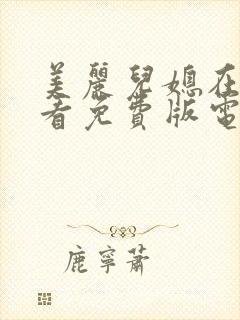 美麗兒媳在
看免費版電
鹿寧蕭